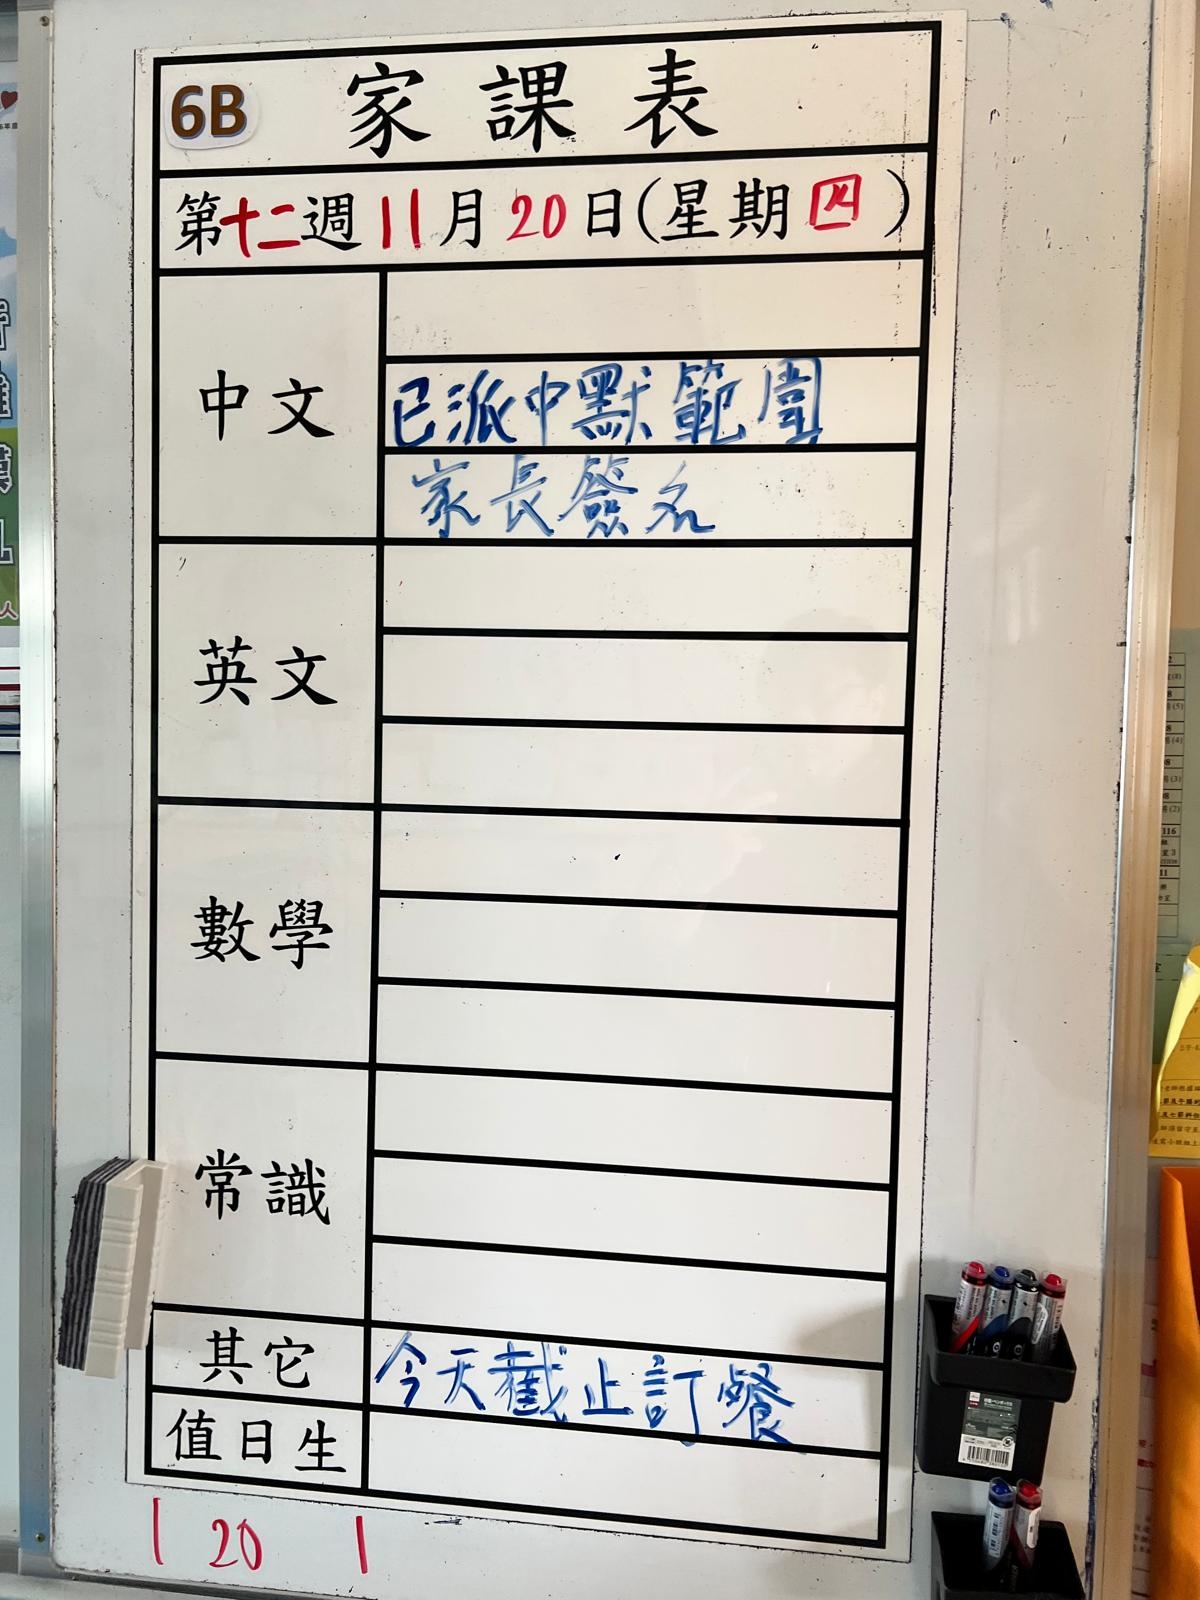 6B 家課表
第十二週 11月20日(星期四)
中文
已派中默範圍
家長簽名
英文
數學
常識
其它 今天截止訂餐
值日生
1 20 1